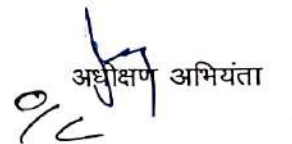 अधीक्षण अभियंता
O/C